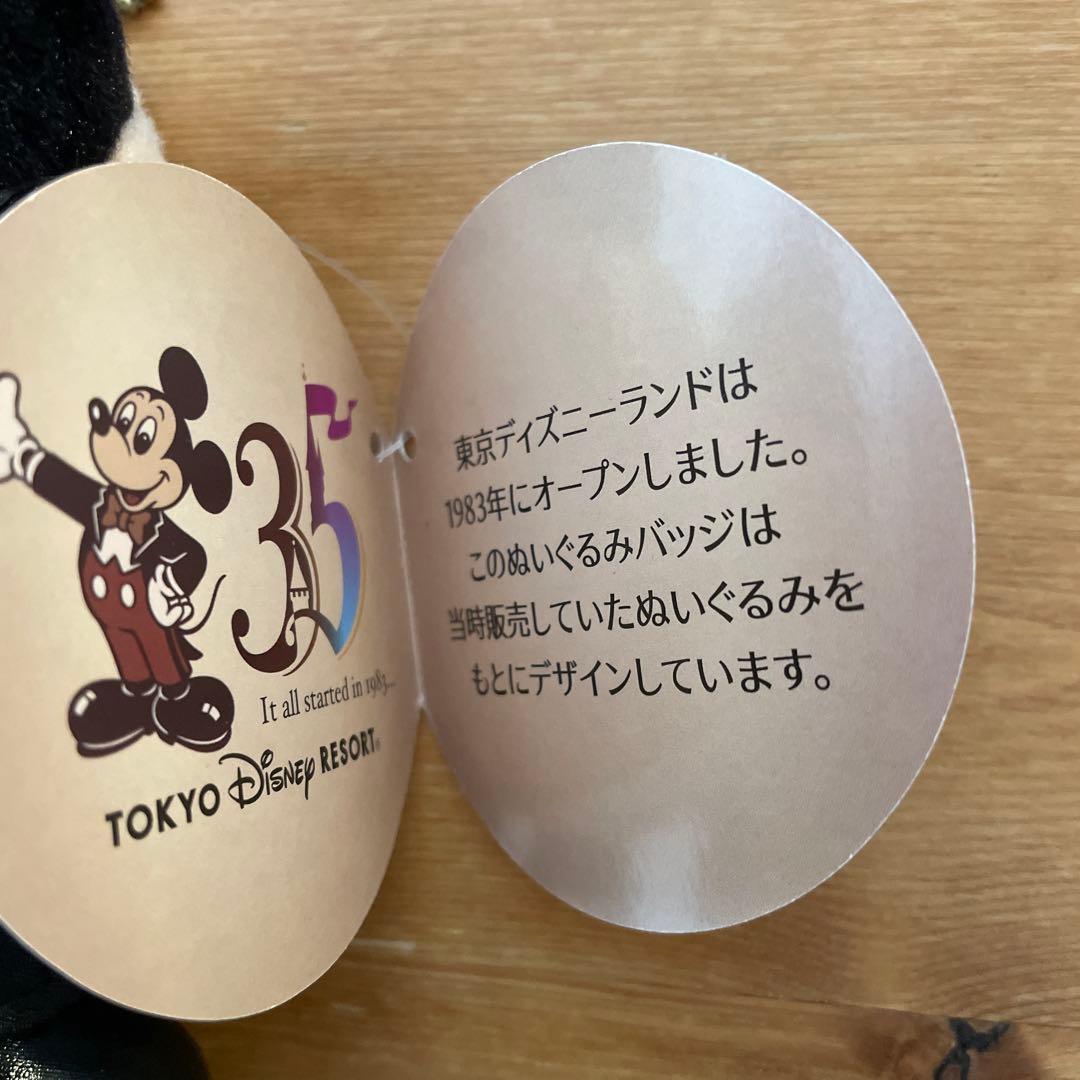 35
It all started in 1983...
TOKYO Disney RESORT®
東京ディズニーランドは
1983年にオープンしました。
このぬいぐるみバッジは
当時販売していたぬいぐるみを
もとにデザインしています。